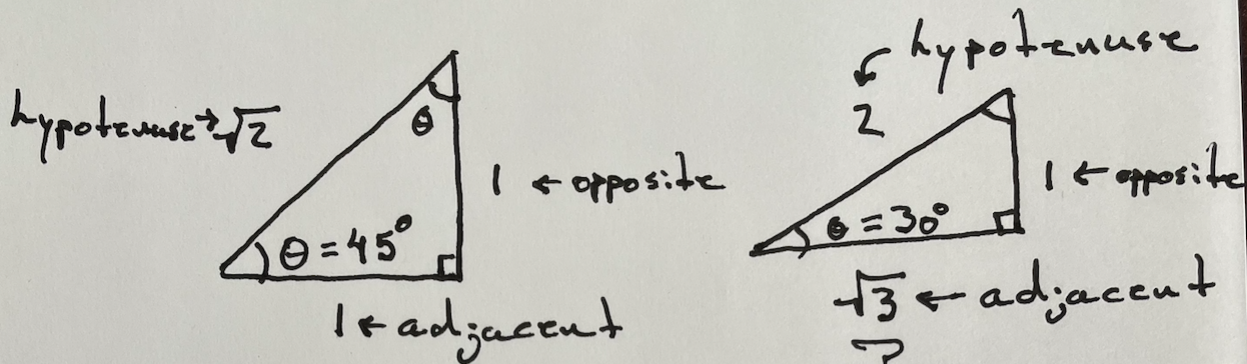 hypotenuse→√2
θ
θ = 45°
1 ← opposite
1 ← adjacent
hypotenuse
2
θ = 30°
1 ← opposite
√3 ← adjacent